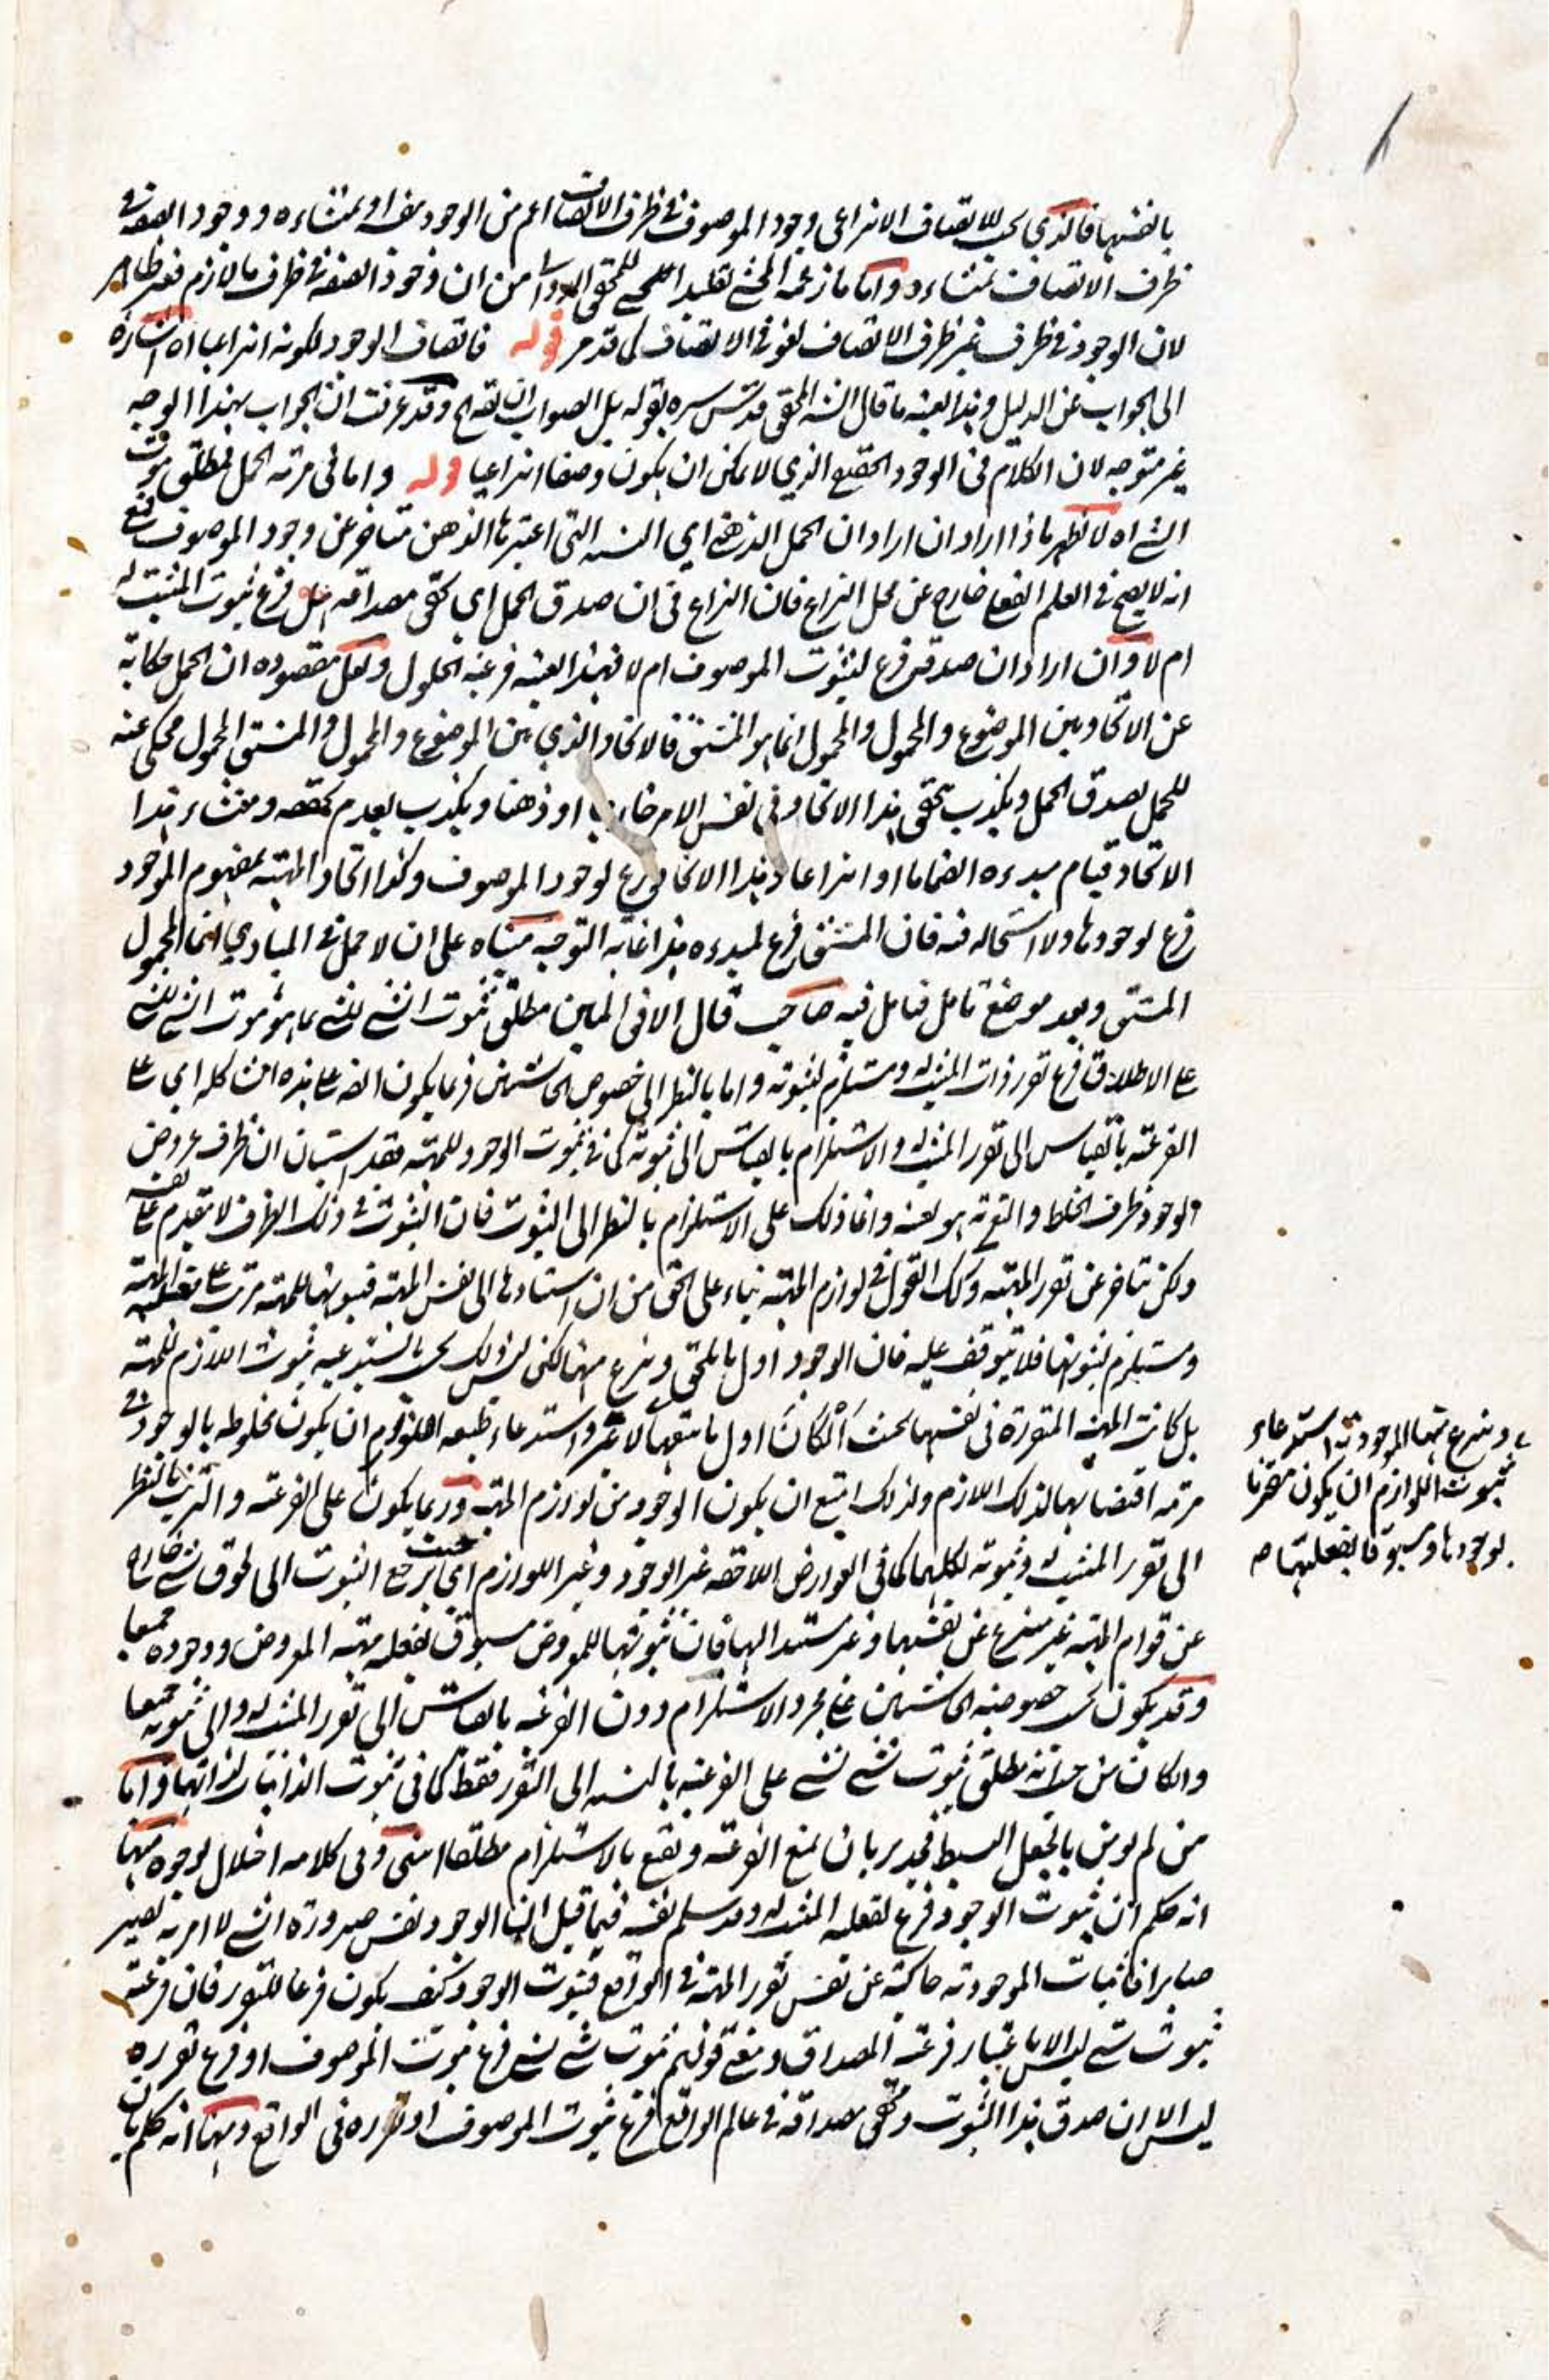 بانفسها فالذي يجب للاتصاف الانتزاعي وجود الموصوف في ظرف الاتصاف اعم من الوجود بنفسه او بمنشاءه ووجود الصفة في
ظرف الاتصاف بمنشاءه واما ما زعمه المحشي تقليدا للمحقق الدواني من ان وجود الصفة في ظرف ما لازم فغير ظاهر
لان الوجود في ظرف غير ظرف الاتصاف لغو في الاتصاف كما قد مر قوله فاتصاف الوجود لكونه انتزاعيا اه اشارة
الى الجواب عن الدليل وهذا بعينه ما قال الش المحقق قدس سره بقوله بل الصواب ان يقال وقد عرفت ان الجواب بهذا الوجه
غير متوجه لان الكلام في الوجود الحقيقي الذي لا يمكن ان يكون وصفا انتزاعيا قوله واما في مرتبة الحمل فمطلق ثبوت
الشئ اه لا يظهر ماذا اراد ان اراد ان الحمل الذهني اي النسبة التي اعتبرها الذهن متاخر عن وجود الموصوف فمع
انه لا يصح في العلم الفعلي خارج عن محل النزاع فان النزاع في ان صدق الحمل اي تحقق مصداقه هل فرع ثبوت المثبت له
ام لا وان اراد ان صدقه فرع لثبوت الموصوف ام لا فهذا بعينه فرعية الحلول ولعل مقصوده ان الحمل حكاية
عن الاتحاد بين الموضوع والمحمول والمحمول انما هو المشتق فالاتحاد الذي بين الموضوع والمحمول والمشتق المحمول محكي عنه
للحمل يصدق الحمل ويكذب بتحقق هذا الاتحاد في نفس الامر خارجا او ذهنا ويكذب بعدم تحققه ومنشاء هذا
الاتحاد قيام مبدءه انضماما او انتزاعا وهذا الاتحاد فرع لوجود الموصوف وكذا اتحاد المهية بمفهوم الموجود
فرع لوجودها ولا استحالة فيه فان المشتق فرع لمبدءه هذا غاية التوجيه مبناه على ان لا حمل في المبادي انما المحمول
المشتق وبعد موضع تامل فتامل فيه صاحب قال الافق المبين مطلق ثبوت الشئ للشئ بما هو ثبوت الشئ للشئ
على الاطلاق فرع تقرر ذات المثبت له ومستلزم لثبوته واما بالنظر الى خصوص الحاشيتين فربما يكون الفرعية على هذه الشاكلة اي على
الفرعية بالقياس الى تقرر المثبت له والاستلزام بالقياس الى ثبوته كما في ثبوت الوجود للمهية فقد استبان ان ظرف عروض
الوجود ظرف الخلط والتعرية هو بعينه وانما ذلك على الاستلزام بالنظر الى الثبوت فان الثبوت في ذلك الظرف لا يتقدم على نفسه
ولكن يتاخر عن تقرر المهية وكذلك القول في لوازم المهية بناء على الحق من ان استنادها الى نفس المهية فثبوتها للمهية مرتب على فعلية المهية
ومستلزم لثبوتها فلا يتوقف عليه فان الوجود اول ما يلحق وينتزع منها لكن ليس ذلك بحسب ما يستدعيه ثبوت اللازم للمهية
بل كانت المهية المتقررة في نفسها بحيث اول ما يتبعها لا غير واستدعاء طبيعة اللزوم ان يكون مخلوطه بالوجود في
مرتبة اقتضائها لذلك اللازم ولذلك امتنع ان يكون الوجود من لوازم المهية وربما يكون على الفرعية والترتب بالنظر
الى تقرر المثبت له وثبوته لكليهما كما في العوارض اللاحقة غير الوجود وغير اللوازم اي حيث يرجع الثبوت الى لحوق شئ خارج
عن قوام المهية غير منتزع عن نفسها وغير مستند اليها فان ثبوتها للمعروض مسبوق بفعلية مهية المعروض ووجوده جميعا
وقد يكون بحسب خصوصية الحاشيتين على مجرد الاستلزام دون الفرعية بالقياس الى تقرر المثبت له والى ثبوته جميعا
وان كان من حيث انه مطلق ثبوت شئ لشئ على الفرعية بالنسبة الى التقرر فقط كما في ثبوت الذاتيات لذاتها واما
من لم يؤمن بالجعل البسيط فجدير بان يمنع الفرعية ويقنع بالاستلزام مطلقا انتهى وفي كلامه اختلال لوجوه منها
انه حكم ان ثبوت الوجود فرع لفعلية المثبت له وقد سلم نفسه فيما قبل ان الوجود نفس صيرورة الشئ لا امر به يصير
صايرا فاثبات الموجودية حاكية عن نفس تقرر المهية في الواقع فثبوت الوجود كيف يكون فرعا للتقرر فان فرعية
ثبوت شئ ليس الا باعتبار فرعية المصداق ومعنى قولهم ثبوت شئ لشئ فرع ثبوت الموصوف او فرع تقرره
ليس الا ان صدق هذا الثبوت وتحقق مصداقه في عالم الواقع فرع ثبوت الموصوف او تقرره في الواقع ومنها انه حكم بان
وينتزع منها الموجودية استدعاء
ثبوت اللوازم ان يكون مقترنا
لوجودها ومسبوقا بفعليتها صح